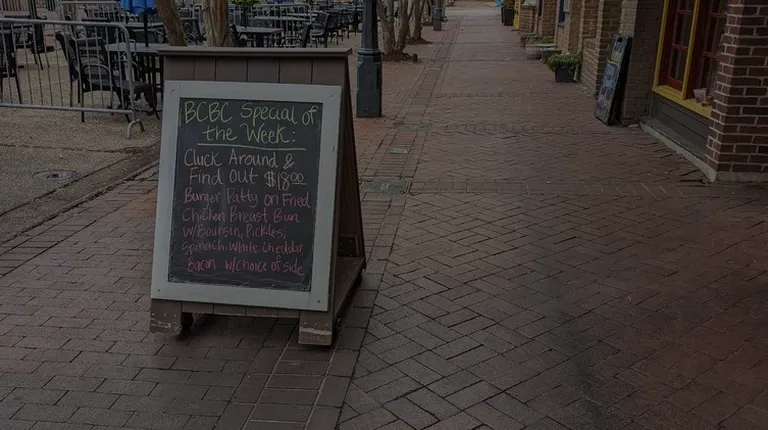 BCBC Special of
the Week:
Cluck Around &
Find Out $18.00
Burger Patty on Fried
Chicken Breast Bun
w/Boursin, Pickles,
Spinach, White Cheddar,
Bacon w/choice of side